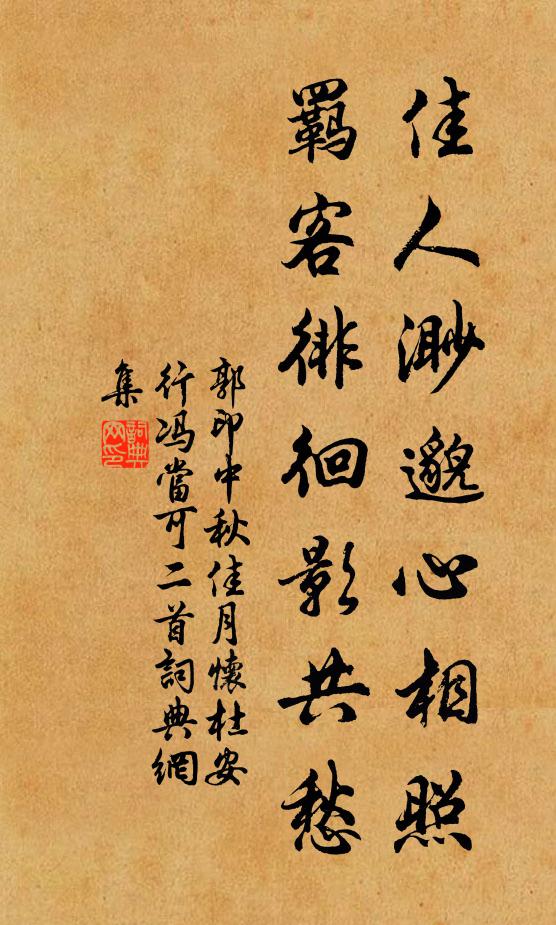 佳人渺邈心相照
羈客徘徊影共愁
郭印中秋佳月懷杜安
行馮當可二首詞典網
集
詞典網印